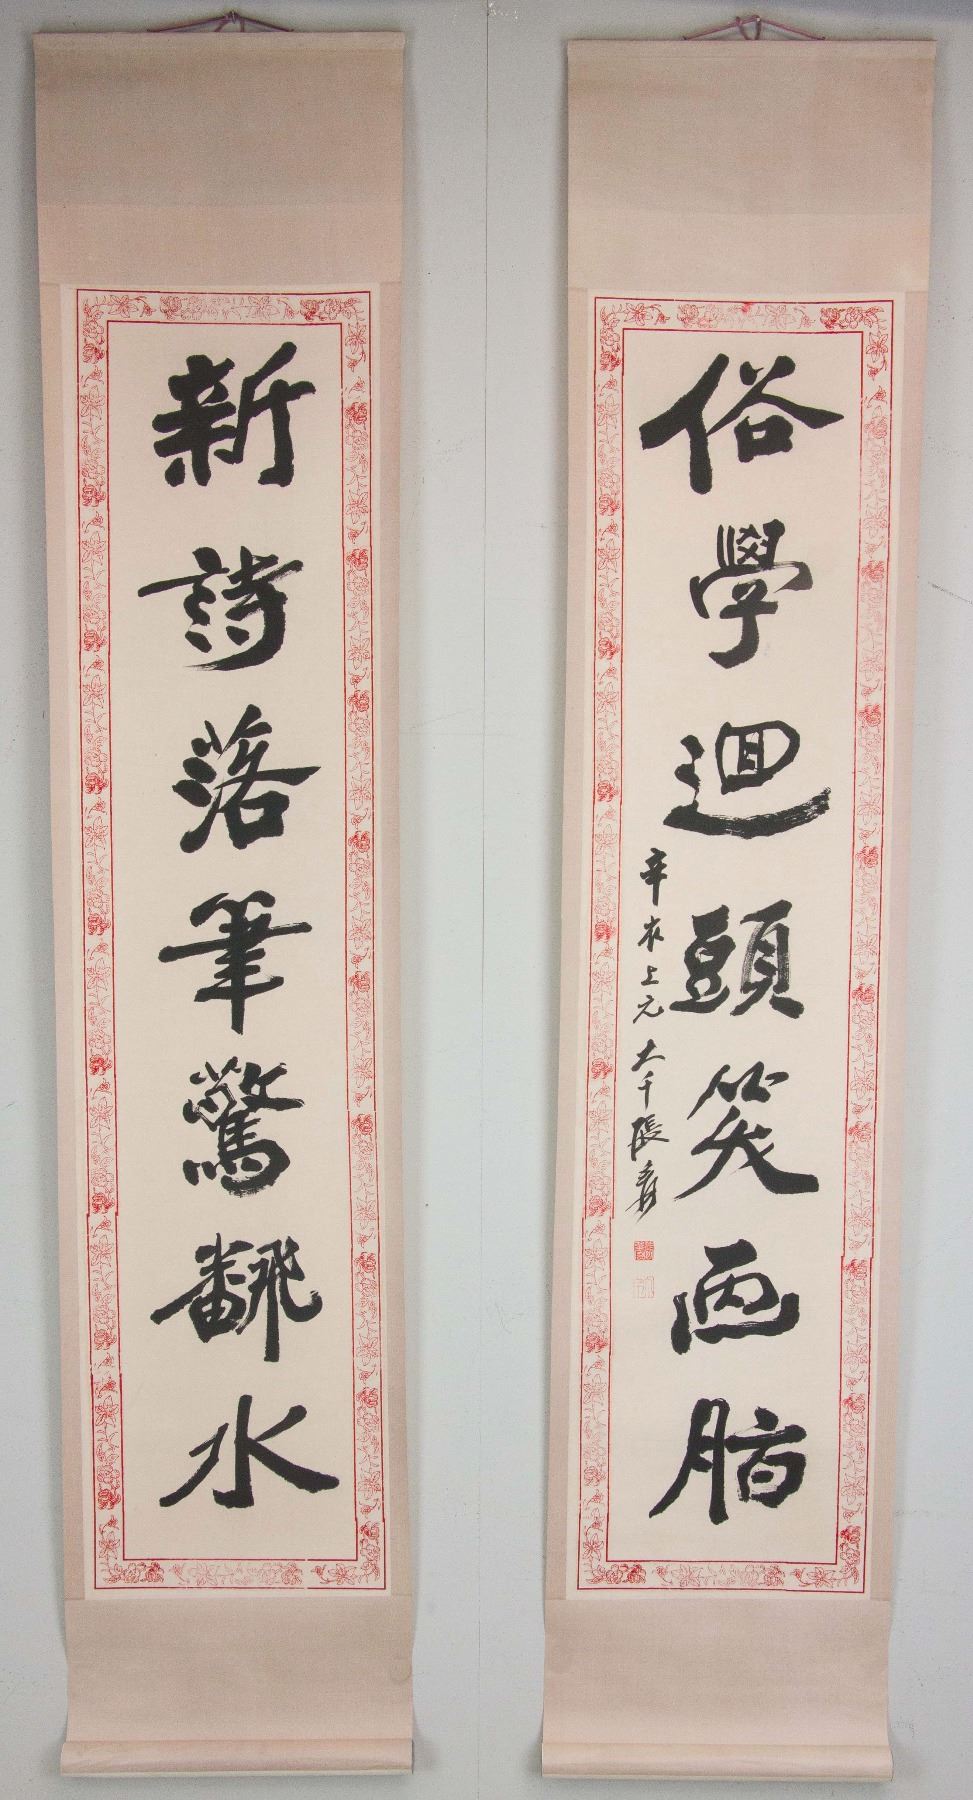 新詩落筆驚飜水
俗學迴頭笑画脂
辛亥上元大千張爰